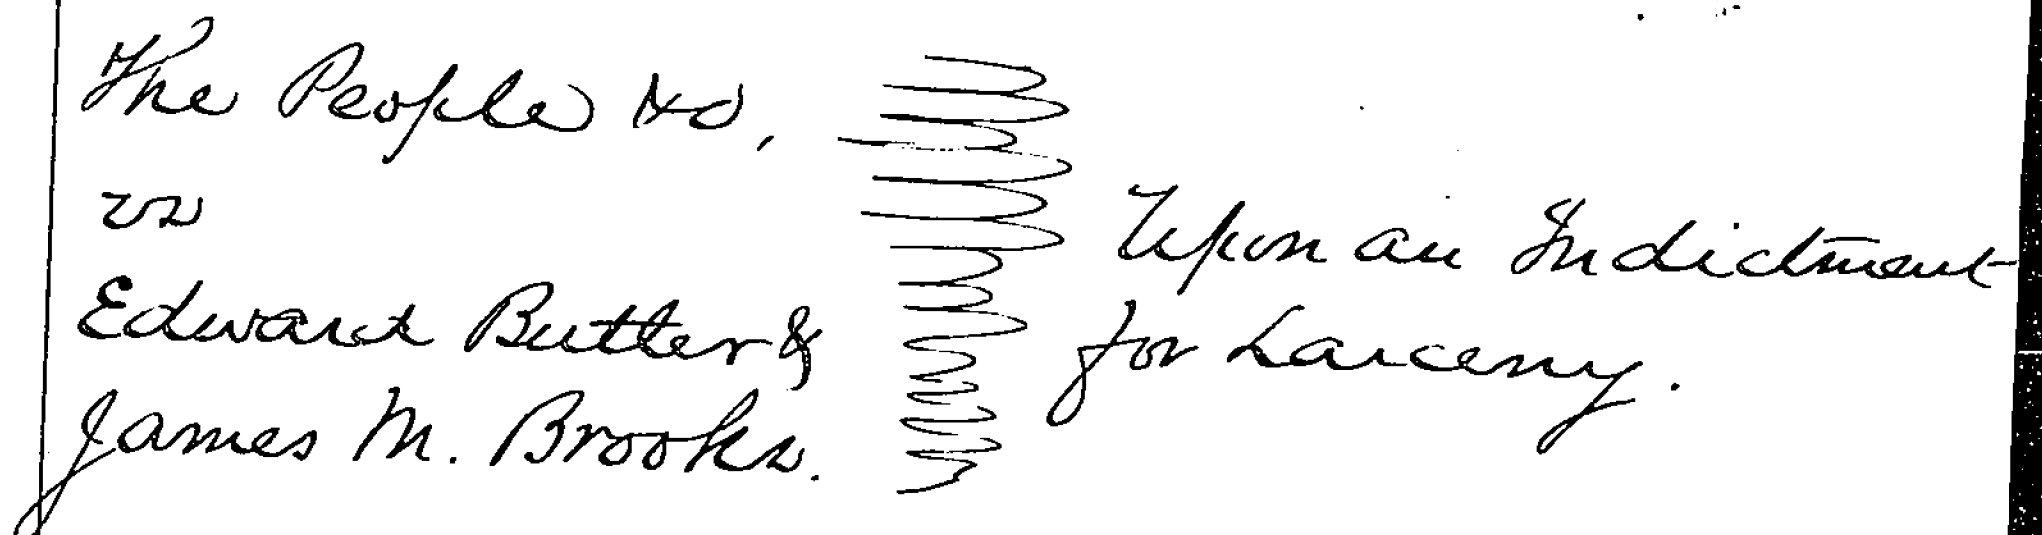 The People &c,
vs
Edward Butler &
James M. Brooks.
Upon an Indictment
for Larceny.